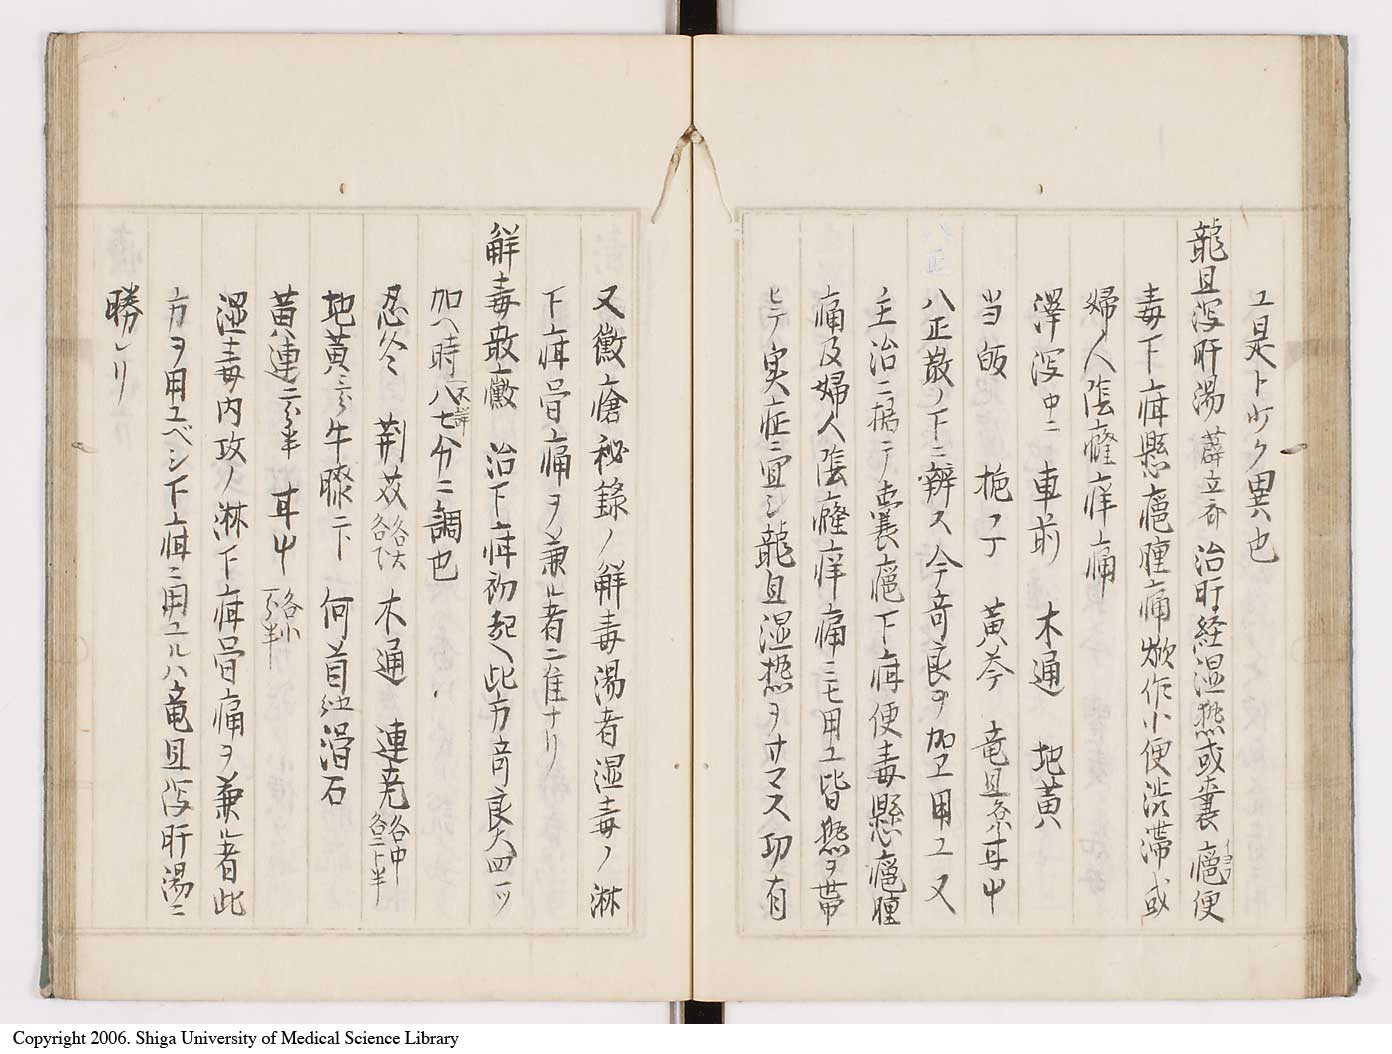 ユ是ト少ク異也
龍且瀉肝湯 薛立斎 治肝経湿熱或嚢癰便
毒下疳懸癰腫痛焮作小便渋滞或
婦人陰癃痒痛
澤瀉中ニ 車前 木通 地黄
当皈 梔子 黄芩 竜且 各小 耳中
八正散ノ下ニ辨ス今奇良ヲ加ヱ用ユ又
主治ニ拠テ嚢癰下疳便毒懸癰腫
痛及婦人陰癃痒痛ニモ用ユ皆熱ヲ帯
ヒテ実症ニ宜シ龍且湿熱ヲサマス功有
又黴瘡秘録ノ解毒湯者湿毒ノ淋
下疳骨痛ヲ兼ル者ニ佳ナリ
解毒散黴 治下疳初起ヘ此方奇良大四ツ
加ヘ時 八七分ニ調也
忍冬 荊芥 各大 木通 連尭 各中
地黄 牛膝 二下 何首 滑石
黄連 二分半 耳中 各小
湿毒内攻ノ淋下疳骨痛ヲ兼ル者此
方ヲ用ユベシ下疳ニ用ユルハ竜且瀉肝湯ニ
勝レリ
Copyright 2006. Shiga University of Medical Science Library